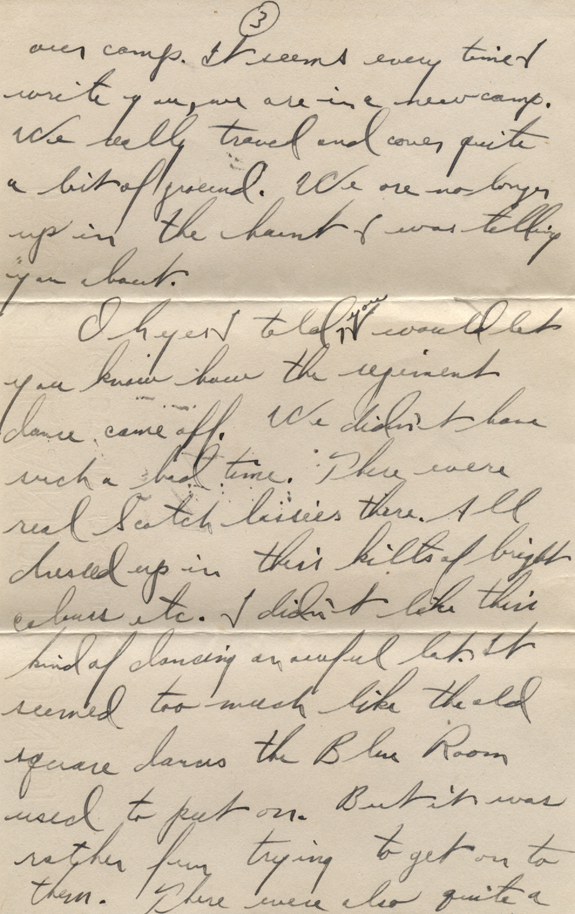 3
our camp. It seems every time I
write you, we are in a new camp.
We really travel and cover quite
a bit of ground. We are no longer
up in the haunt I was telling
you about.
Oh yes I told you I would let
you know how the regiment
dance came off. We didn't have
such a bad time. There were
real Scotch lassies there. All
dressed up in their kilts of bright
colours etc. I didn't like their
kind of dancing an awful lot. It
seemed too much like the old
square dances the Blue Room
used to put on. But it was
rather fun trying to get on to
them. There were also quite a